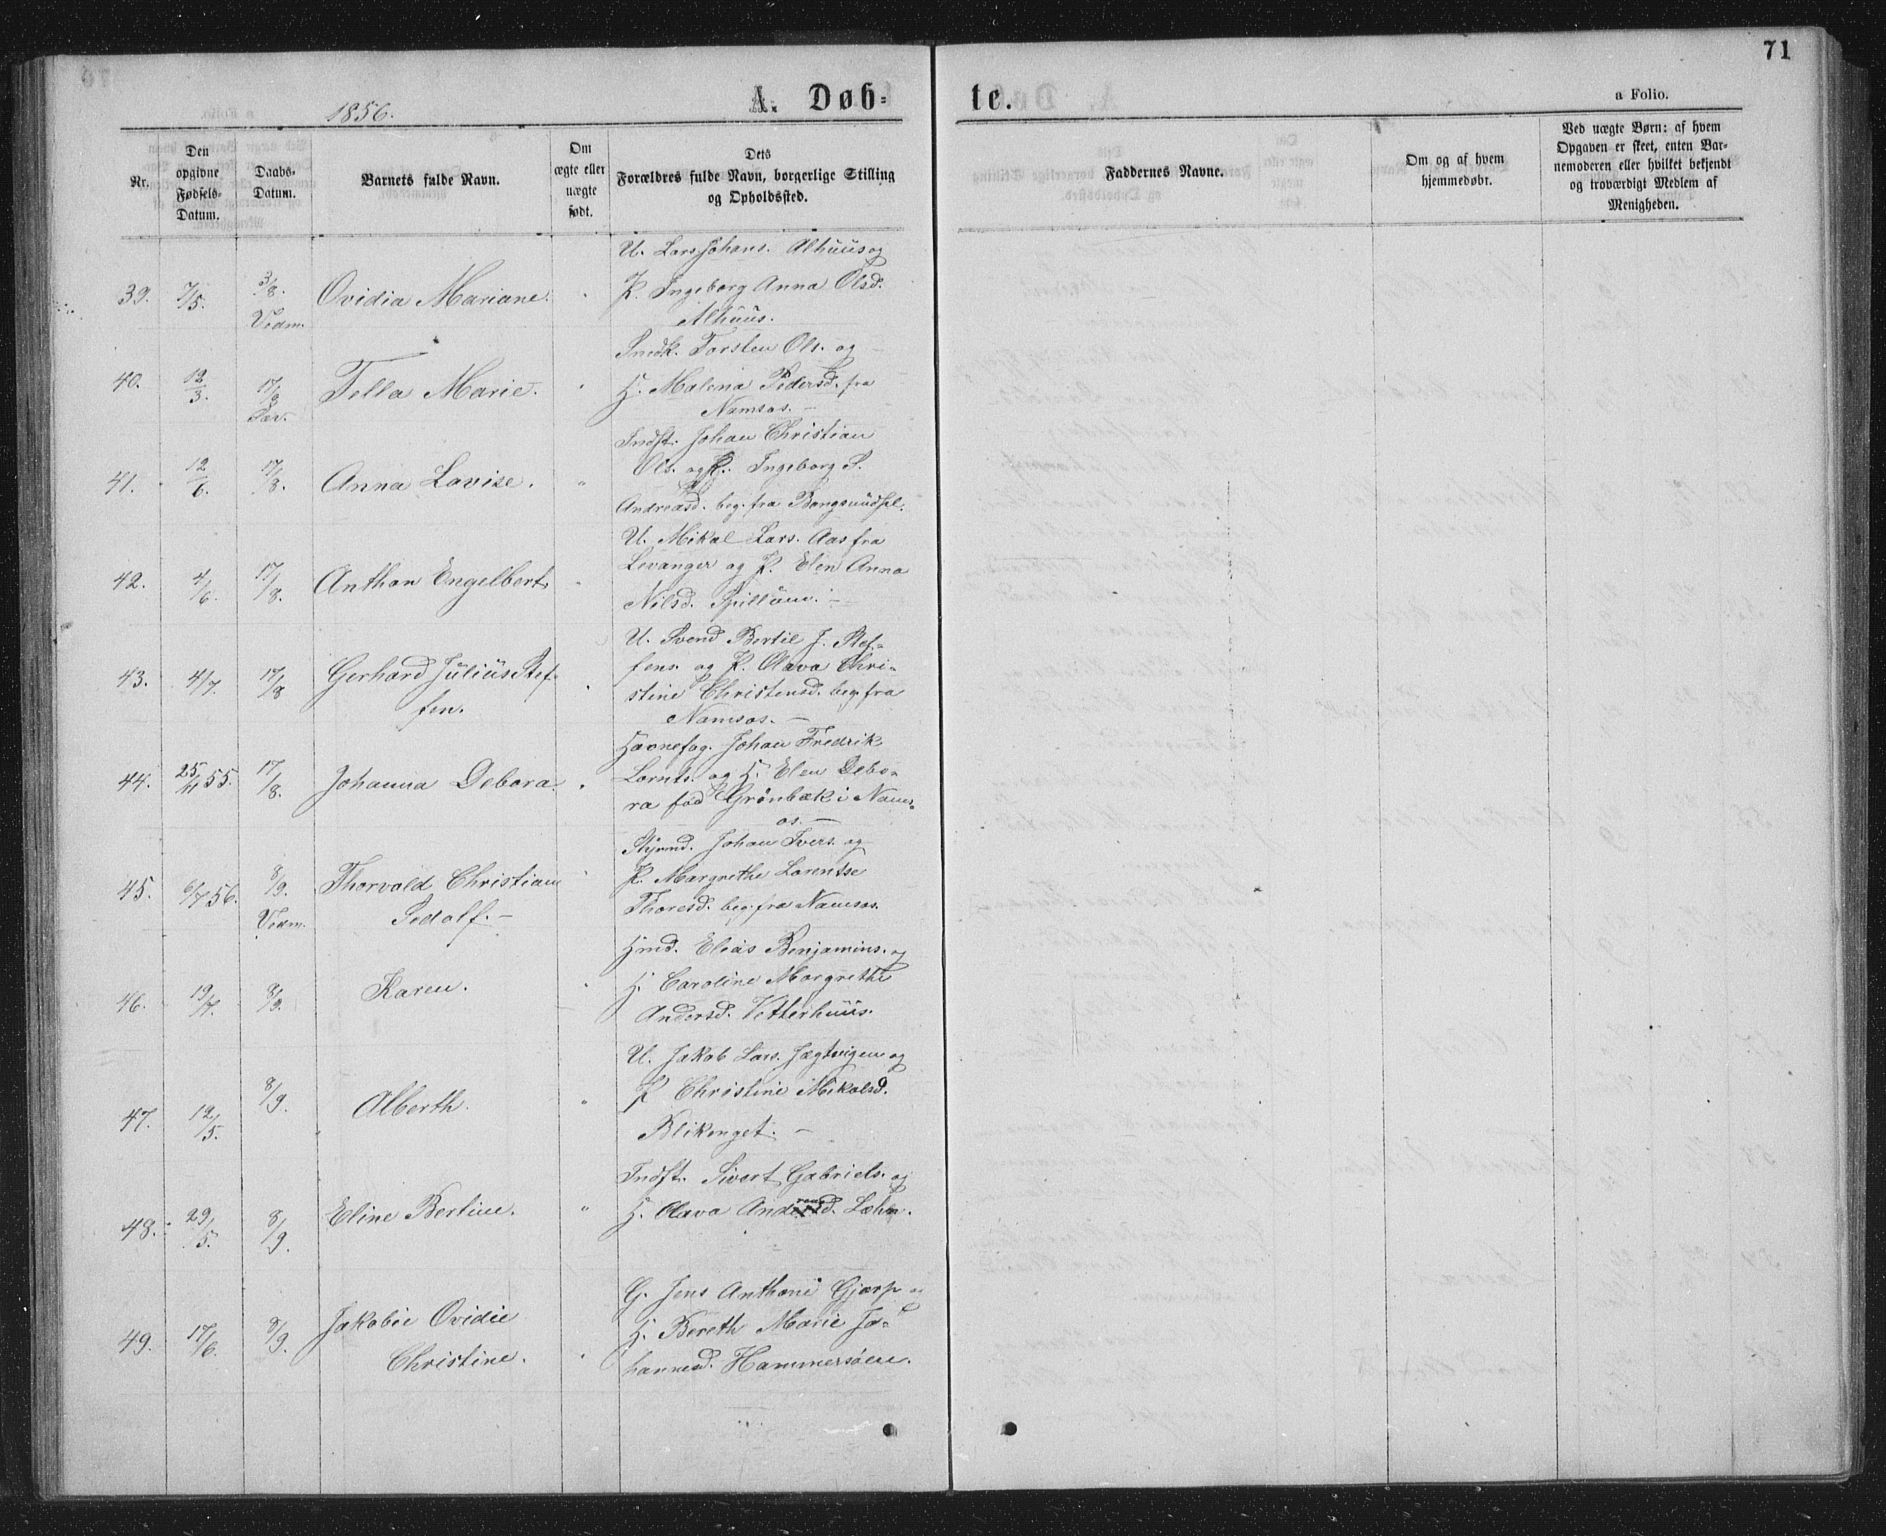 71
1856.
A. Døb=
te.
a Folio.
Nr.
Den
opgivne
Fødsels-
Datum.
Daabs-
Datum.
Barnets fulde Navn.
Om
ægte eller
uægte
født.
Dets
Forældres fulde Navn, borgerlige Stilling
og Opholdssted.
Faddernes Navne.
Om og af hvem
hjemmedøbt.
Ved uægte Børn: af hvem
Opgaven er skeet, enten Bar-
nemoderen eller hvilket bekjendt
og troværdigt Medlem af
Menigheden.
U. Lars Johans. Alhuus og
39. 7/5 3/8. Ovidia Mariane. P. Ingeborg Anna Olsd.
Vedm. Alhuus.
Snedk. Torsten Ols. og
40. 12/3. 17/8 Tella Marie. H. Malena Pedersd. fra
Sav. Namsos.
Indst. Johan Christian
41. 12/6. 17/8. Anna Lovise. " Ols. og P. Ingeborg
Andreasd. beg. fra
U. Mikal Lars. Aas fra
42. 4/6. 17/8. Anthon Engelbert. Levanger og P. Elen Anna
Nilsd. Spillum.
U. Svend Bertil J. Stef-
43. 4/7. 17/8 Gerhard Julius Stef- fens. og P. Olava Chri-
fen. stine Christensd. beg. fra
Namsos.
Havnefog. Johan Fredrik
44. 25/11 55. 17/8. Johanna Debora. Lornts. og H. Elen Debo-
ra fød Grønbæk i Nams-
os.
Styrmd. Johan Ivers. og
45. 6/7 56. 8/9. Thorvald Christian P. Margrethe Lorentse
Vedm. Sedolf. Thoresd. beg. fra Namsos.
Hmd. Elias Benjamins. og
46. 19/7. 8/9. Karen. H. Caroline Margrethe
Andersd. Vetterhuus.
U. Jakob Lars. Jægtvigen og
47. 12/5. 8/9. Alberth. " P. Christine Mikalsd.
Blikenget.
Indst. Sivert Gabriels. og
48. 29/5. 8/9. Eline Bertine. " H. Olava Andreasd. Læhn.
G. Jens Anthoni Gjærp
49. 17/6. 8/9. Jakobie Ovidie H. Bereth Marie Jo-
Christine. hannesd. Hammersøen.